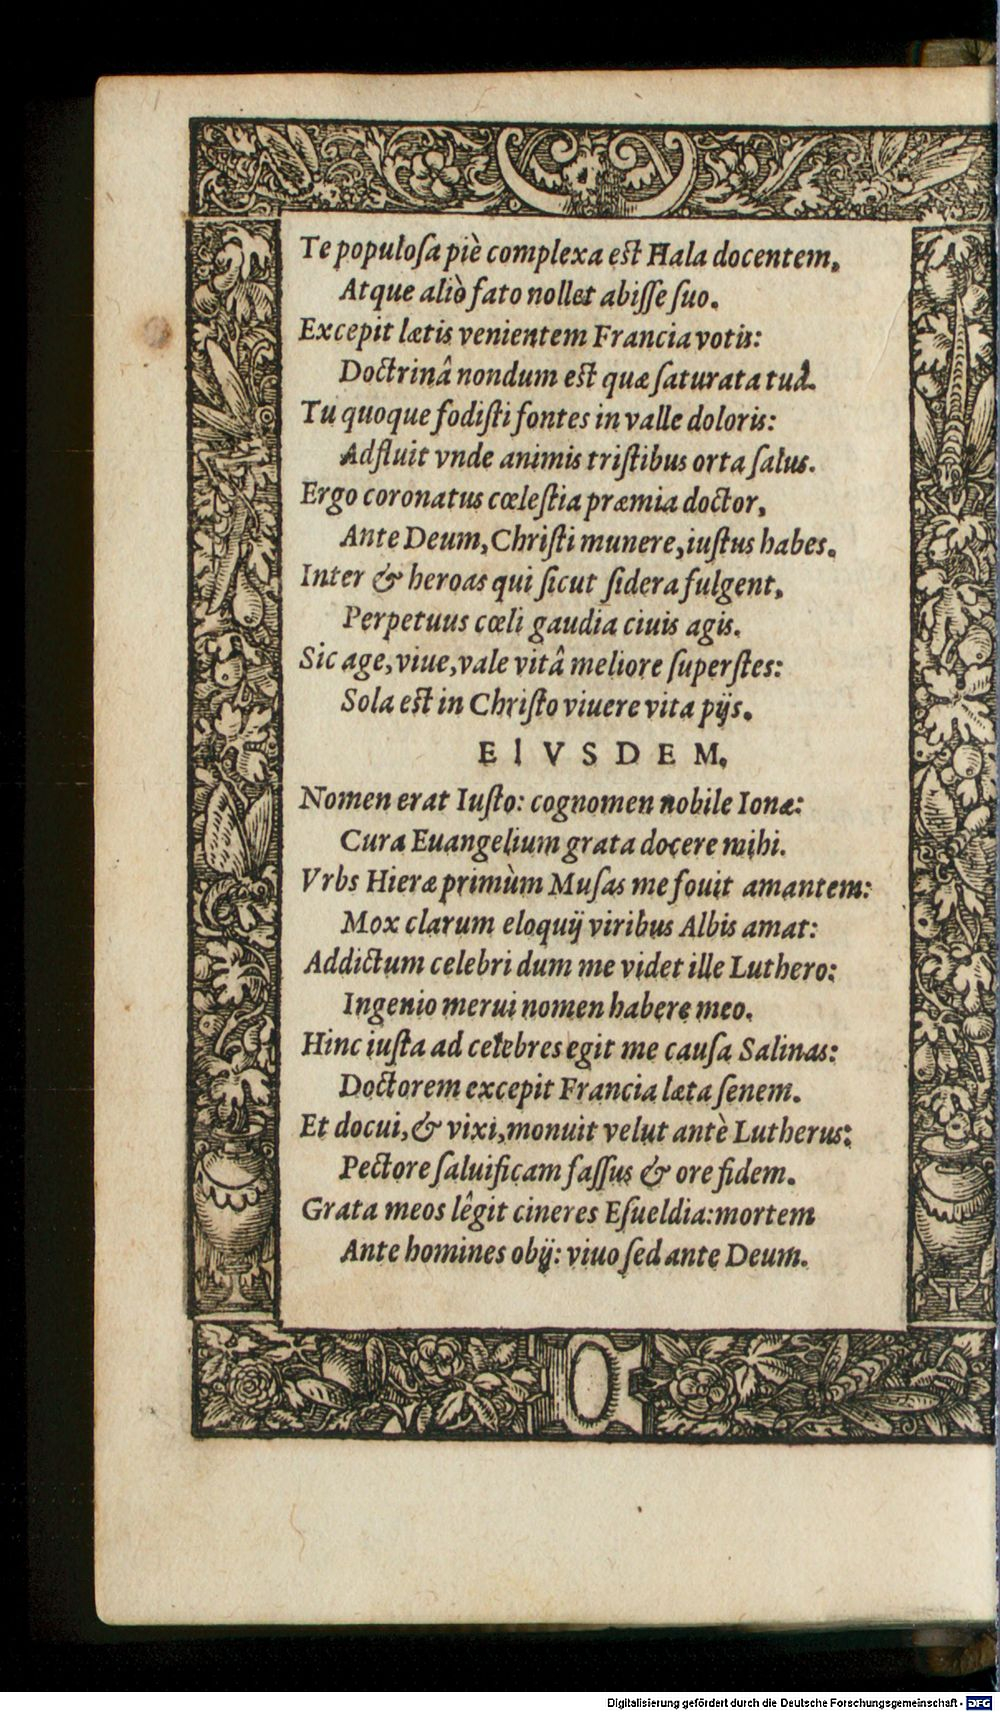 Te populoſa piè complexa est Hala docentem,
Atque aliò fato nollet abiſſe ſuo.
Excepit lætis venientem Francia votis:
Doctrinâ nondum est quæ ſaturata tuâ.
Tu quoque fodiſti fontes in valle doloris:
Adfluit vnde animis triſtibus orta ſalus.
Ergo coronatus cœleſtia præmia doctor,
Ante Deum, Chriſti munere, iuſtus habes.
Inter & heroas qui ſicut ſidera fulgent,
Perpetuus cœli gaudia ciuis agis.
Sic age, viue, vale vitâ meliore ſuperſtes:
Sola est in Chriſto viuere vita pijs.
EIVSDEM.
Nomen erat Iuſto: cognomen nobile Ionæ:
Cura Euangelium grata docere mihi.
Vrbs Hieræ primùm Muſas me fouit amantem:
Mox clarum eloquij viribus Albis amat:
Addictum celebri dum me videt ille Luthero:
Ingenio merui nomen habere meo.
Hinc iuſta ad celebres egit me cauſa Salinas:
Doctorem excepit Francia læta ſenem.
Et docui, & vixi, monuit velut antè Lutherus:
Pectore ſaluificam faſſus & ore fidem.
Grata meos lêgit cineres Eſueldia: mortem
Ante homines obij: viuo ſed ante Deum.
Digitalisierung gefördert durch die Deutsche Forschungsgemeinschaft - DFG